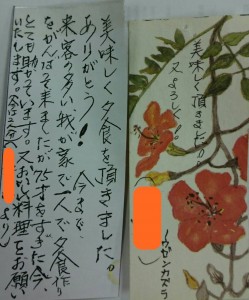 美味しく夕食を頂きました。
ありがとう！今まで、
来客の多い我が家で一人で夕食作り
ながんばってきましたが75才をすぎた今、
とても助かっています。又おいしい料理をお願い
いたします。
より
美味しく頂きました!!
又よろしく！
ノウゼンカズラ